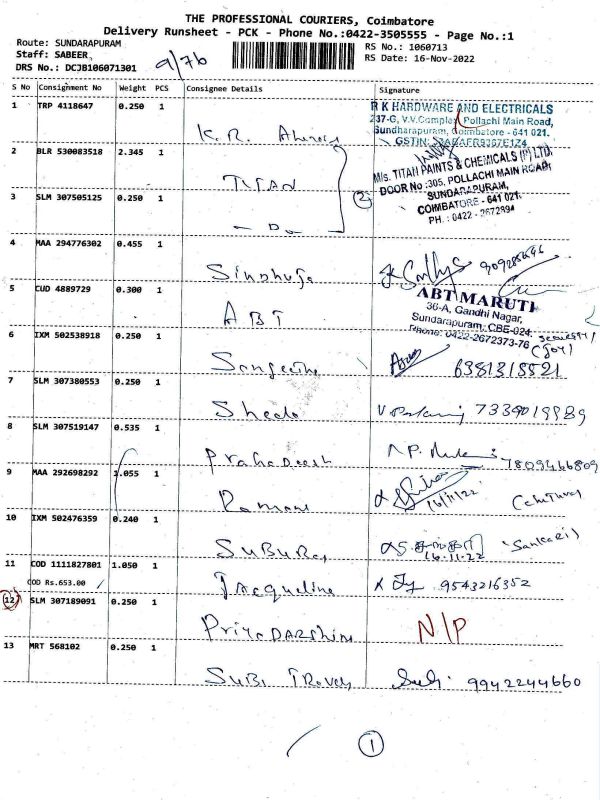 THE PROFESSIONAL COURIERS, Coimbatore
Delivery Runsheet - PCK - Phone No.:0422-3505555 - Page No.:1
Route: SUNDARAPURAM
Staff: SABEER,
DRS No.: DCJB106071301
9/76
RS No.: 1060713
RS Date: 16-Nov-2022
S No Consignment No Weight PCS Consignee Details Signature
1 TRP 4118647 0.250 1 K.R.
R K HARDWARE AND ELECTRICALS
237-G, V.V.Complex, Pollachi Main Road,
Sundharapuram, Coimbatore - 641 021.
2 BLR 530083518 2.345 1 TITAN
M/s. TITAN PAINTS & CHEMICALS (P) LTD.
DOOR No :305, POLLACHI MAIN ROAD,
SUNDARAPURAM,
COIMBATORE - 641 021.
PH. : 0422 - 2672894
3 SLM 307505125 0.250 1 - Do - 2
4 MAA 294776302 0.455 1 Sindhuja
5 CUD 4889729 0.300 1 ABT
ABT MARUTI
36-A, Gandhi Nagar,
Sundarapuram, CBE-024.
Phone: 0422-2672373-76
6 IXM 502538918 0.250 1 Sangeetha 6381318521
7 SLM 307380553 0.250 1 Sheela 7339019889
8 SLM 307519147 0.535 1 7809466809
9 MAA 292698292 1.055 Ramani 16/11/22
10 IXM 502476359 0.240 1 16-11-22
11 COD 1111827801 1.050 1 Jacqueline 9543216352
COD Rs.653.00
12 SLM 307189091 0.250 1 PRIYADARSHINI N/P
13 MRT 568102 0.250 1 SUBI 9942244660
1